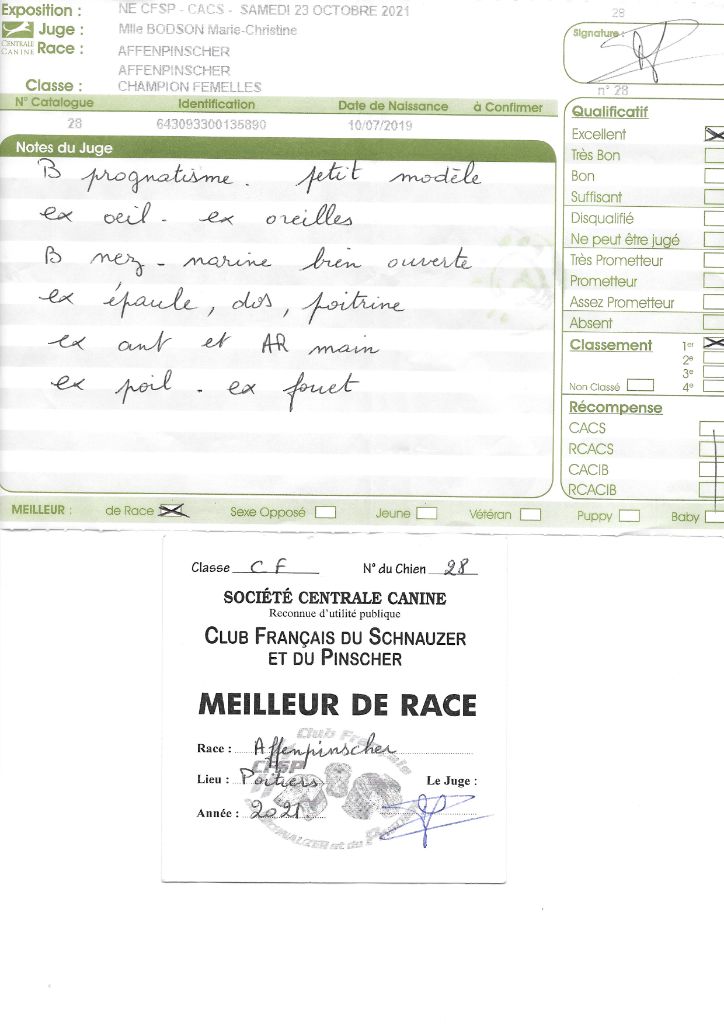 Exposition : NE CFSP - CACS - SAMEDI 23 OCTOBRE 2021
28
CENTRALE CANINE
Juge : Mlle BODSON Marie-Christine
Signature :
Race : AFFENPINSCHER
AFFENPINSCHER
Classe : CHAMPION FEMELLES
n° 28
N° Catalogue Identification Date de Naissance à Confirmer
28 643093300135890 10/07/2019
Notes du Juge
B prognatisme. petit modèle
ex oeil - ex oreilles
B nez - narine bien ouverte
ex épaule, dos, poitrine
ex ant et AR main
ex poil - ex fouet
Qualificatif
Excellent
Très Bon
Bon
Suffisant
Disqualifié
Ne peut être jugé
Très Prometteur
Prometteur
Assez Prometteur
Absent
Classement 1er
2e
3e
Non Classé 4e
Récompense
CACS
RCACS
CACIB
RCACIB
MEILLEUR : de Race Sexe Opposé Jeune Vétéran Puppy Baby
Classe C F N° du Chien 28
SOCIÉTÉ CENTRALE CANINE
Reconnue d'utilité publique
CLUB FRANÇAIS DU SCHNAUZER
ET DU PINSCHER
MEILLEUR DE RACE
Race : Affenpinscher
Lieu : Poitiers Le Juge :
Année : 2021